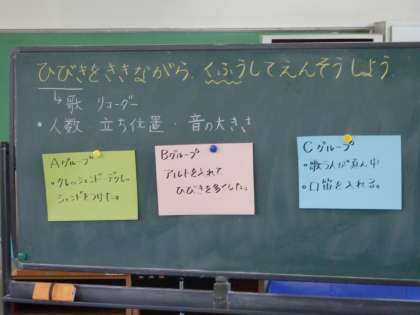 ひびきをききながら、くふうしてえんそうしよう。
↳歌 リコーダー
・人数・立ち位置・音の大きさ
Aグループ
・クレッシェンド・デクレッ
シェンドをつけた。
Bグループ
アルトを入れて
ひびきを多くした。
Cグループ
・歌う人が真ん中
・口笛を入れる。